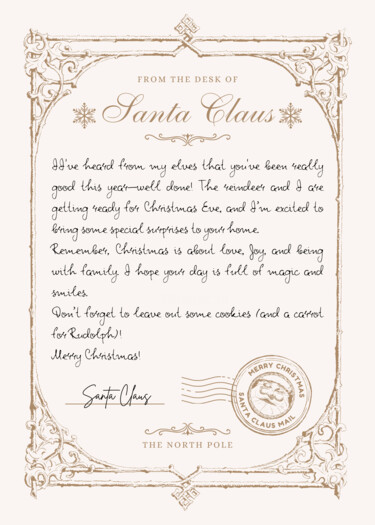 FROM THE DESK OF
Santa Claus
I I've heard from my elves that you've been really
good this year—well done! The reindeer and I are
getting ready for Christmas Eve, and I'm excited to
bring some special surprises to your home.
Remember, Christmas is about love, Joy, and being
with family. I hope your day is full of magic and
smiles.
Don't forget to leave out some cookies (and a carrot
for Rudolph)!
Merry Christmas!
Santa Claus
MERRY CHRISTMAS
SANTA CLAUS MAIL
THE NORTH POLE